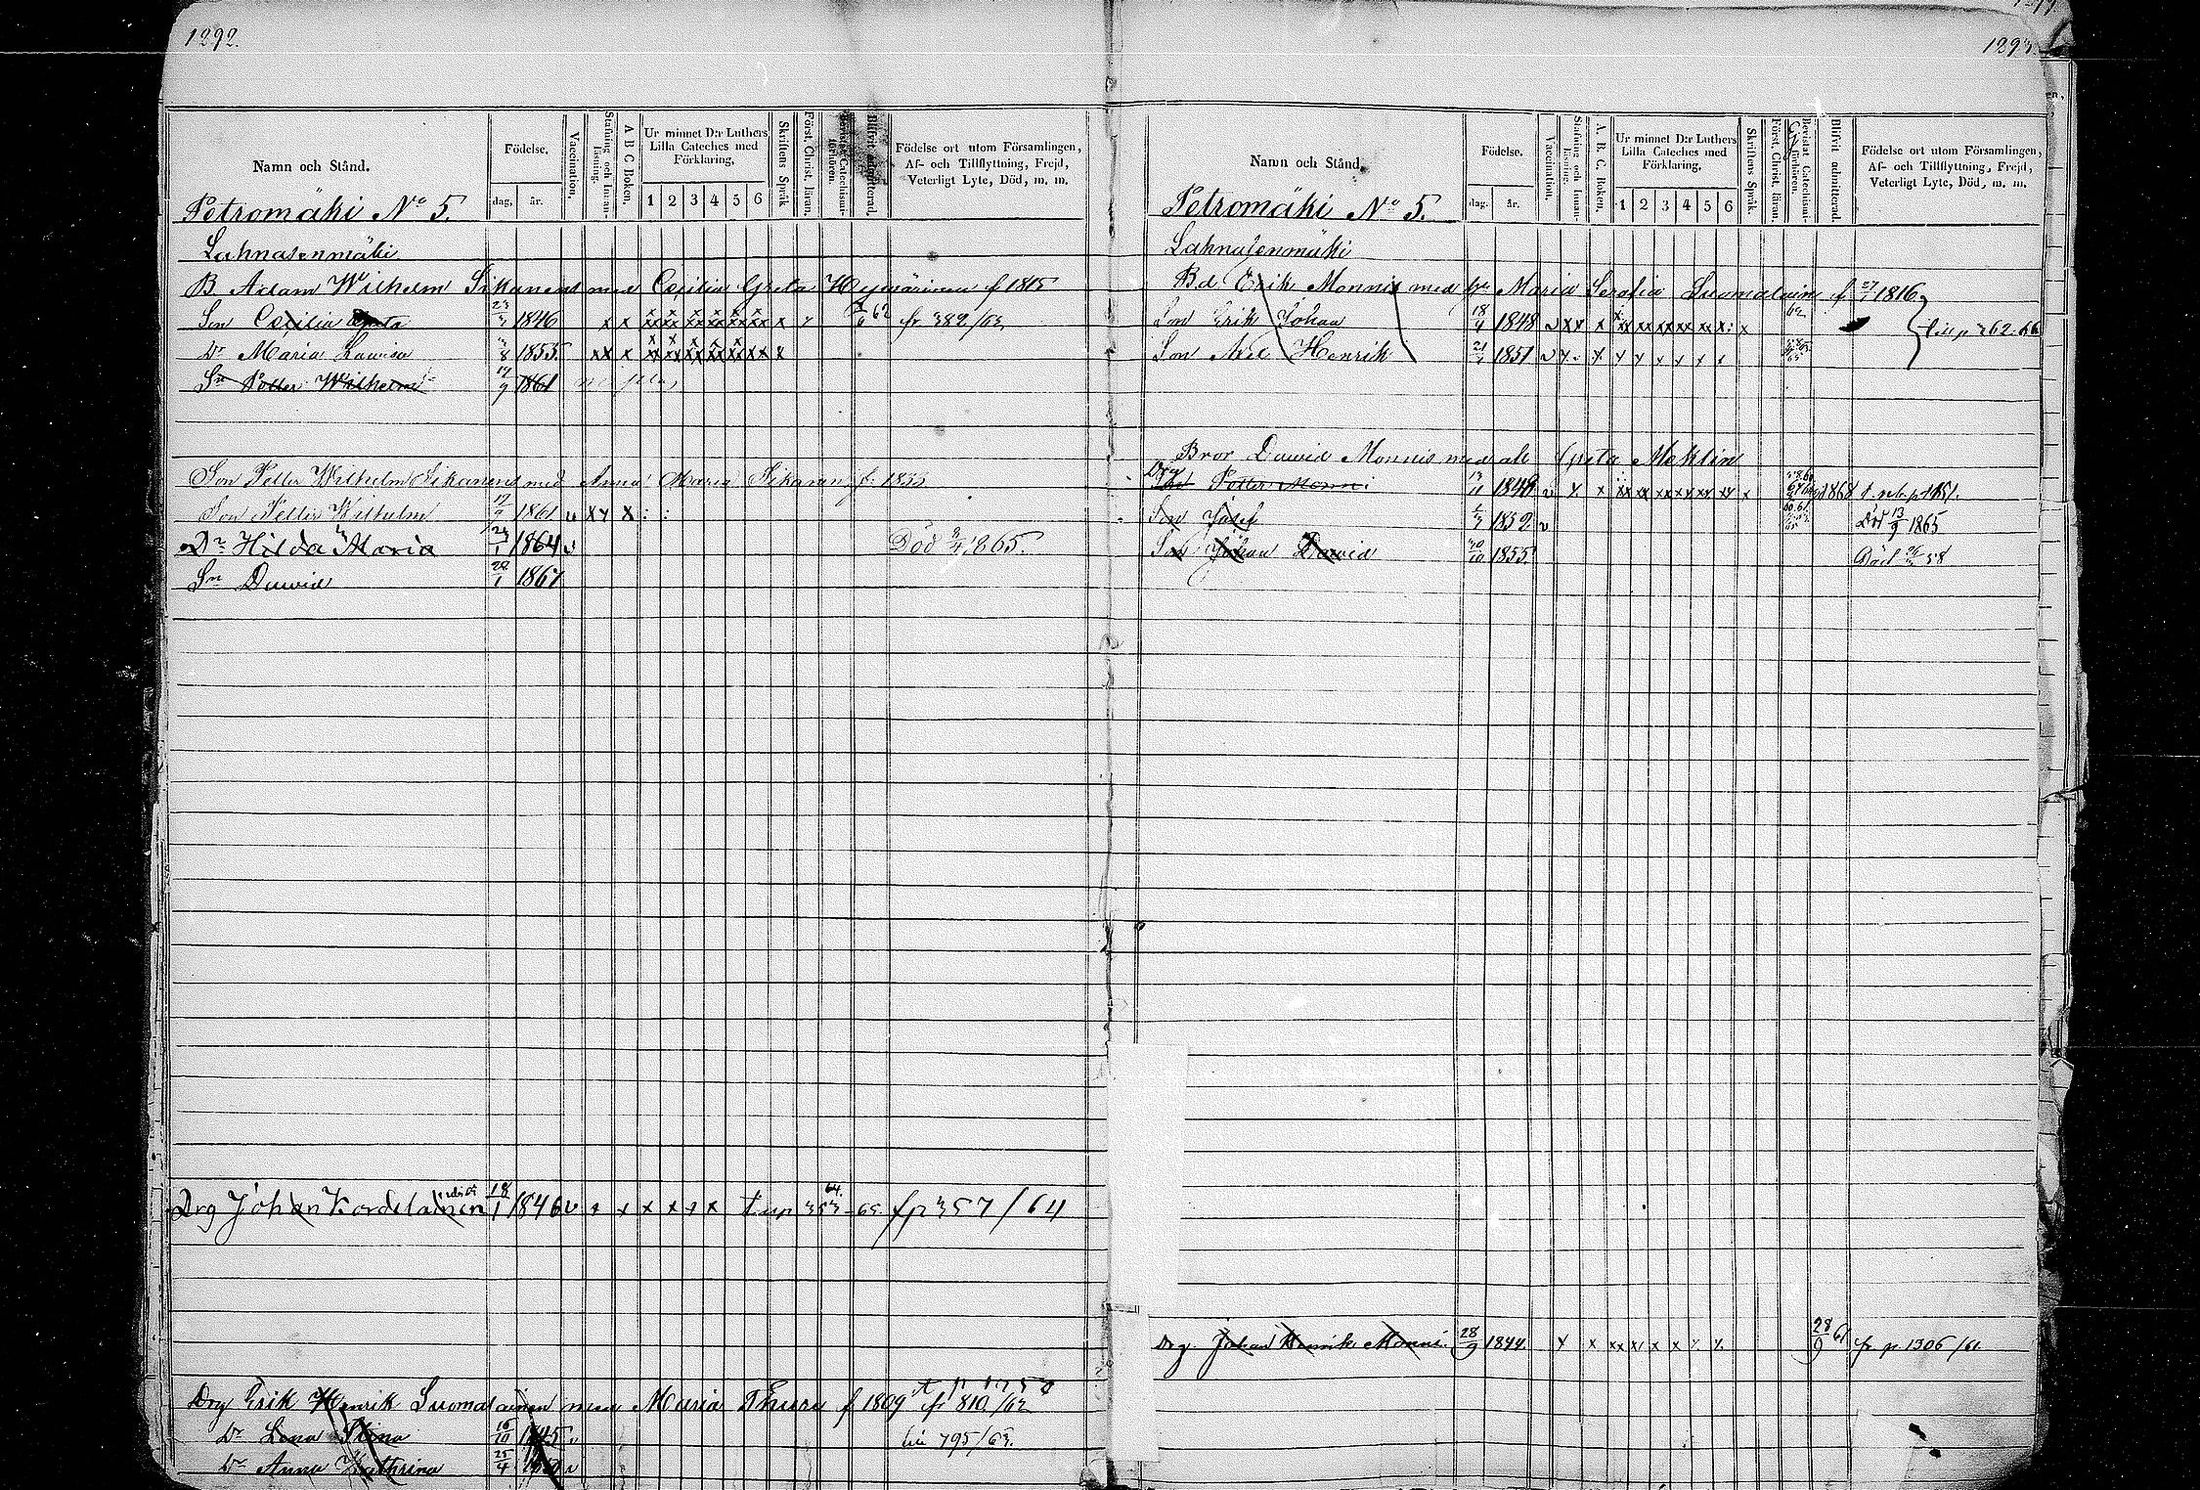 1292.
Namn och Stånd.
Födelse.
dag.
år.
Vaccination.
Stafning och Innanläsning.
A B C Boken.
Ur minnet D:r Luthers Lilla Cateches med Förklaring,
1 2 3 4 5 6
Skriftens Språk
Först. Christ. läran.
Bevistat Catechismiförhören.
Blifvit admitterad.
Födelse ort utom Församlingen, Af- och Tillflyttning, Frejd, Veterligt Lyte, Död, m. m.
Petromäki No 5.
Lahnasenmäki
B Adam Wilhelm Sikanen med Cecilia Greta Hyvärinen f 1815
Cecilia Greta 23/3 1846 x x x x x x x x x fr 382/63
Dr Maria Lovisa 1855 x x x x x x x x x x
Sn Petter Wilhelm 17/9 1861
Son Petter Wilhelm Sikanen med Anna Maria Sikanen f. 1833
Son Petter Wilhelm 17/9 1861 v x x x : :
Dr Hilda Maria 1864 v Död 3/4 1865.
Sn David 22/1 1867
Drg Johan Kordelainen 18/1 1846 v x x x x x x fp 357/64
Drg Erik Henrik Suomalainen med Maria Thuru f 1809 fr 810/62
Dr Lena Stina 16/10 1845 v 795/63.
Dr Anna Kathrina 25/4 v
1293.
Namn och Stånd.
Födelse.
dag.
år.
Vaccination.
Stafning och Innanläsning.
A. B. C. Boken.
Ur minnet D:r Luthers Lilla Cateches med Förklaring,
1 2 3 4 5 6
Skriftens Språk.
Först. Christ. läran.
Bevistat Catechismiförhören.
Blifvit admitterad.
Födelse ort utom Församlingen, Af- och Tillflyttning, Frejd, Veterligt Lyte, Död, m. m.
Petromäki No 5.
Lahnasenmäki
Bd Erik Monnis med hu Maria Serafia Suomalain f 27/7 1816
Son Erik Johan 18/4 1848 v x x x x x x x x x : x
Son Axel Henrik 1851 v x x x x x x x
Bror David Monnis med ab Greta Meklin
Drg Petter Monni 1848 v x x x x x x x x x 1868
Son Josef 1852 v Död 13/9 1865
Son Johan David 30/10 1855 Död 58
Drg. Johan Henrik Monni. 28/9 1844. x x x x x x x x 28/9 61 fr p 1306/61.